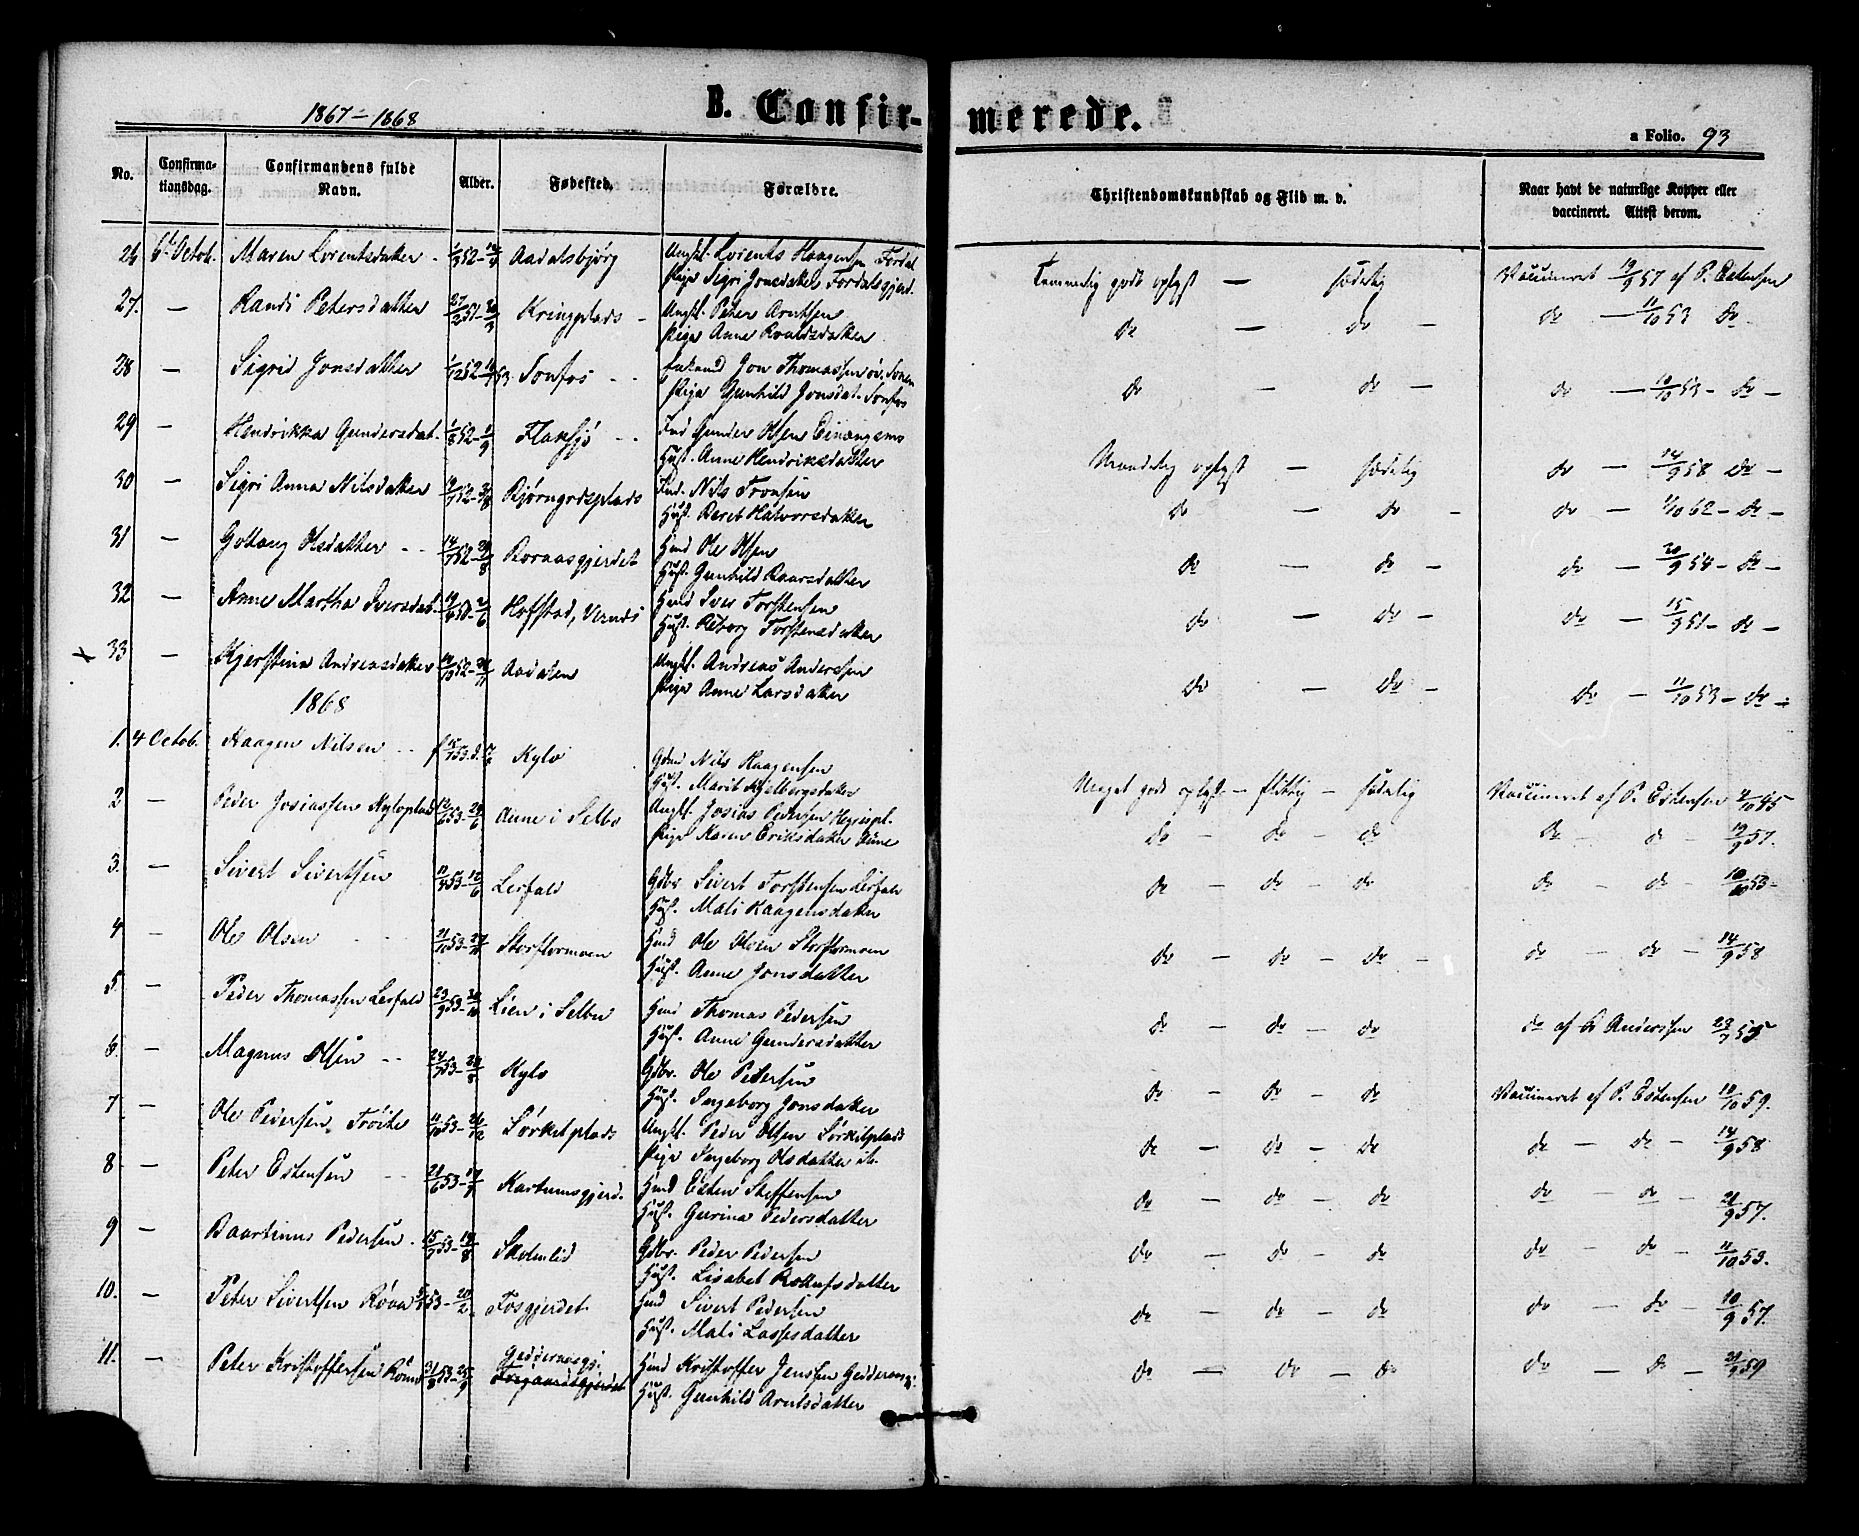 1867-1868
B. Confir-
merede.
a Folio. 93
No.
Confirma-
tionsdag.
Confirmandens fulde
Navn.
Alder.
Fødested.
Forældre.
Christendomskundskab og Flid m. v.
Naar havt de naturlige Kopper eller
vaccineret. Attest derom.
26 6te Octob. Maren Lorentsdatter - 1/3 52 - Aadalsbjørg Ungk. Lorents Haagensen Fordal
Pige Sigri Jonsdatter Fordalsgjerd.
Temmelig godt oplyst - sædelig Vaccineret 19/9 57 af P. Estensen
27. - Randi Petersdatter 27/2 51 - Kringplads - Ungk. Peter Arntsen
Pige Anne Roaldsdatter
do - do - do - 11/10 53 do -
28 - Sigrid Jonsdatter 1/12 52 - Fonfos - - Enkemd Jon Thomassen
Pige Gunhild Jonsdat. Fonfos
do - do - do - 10/10 53 - do -
29 - Hendrikka Gundersdat. 1/8 52 - 1/9 Flaksjø - - Ind Gunder Olsen
Hust. Anne Hendriksdatter
Maadelig oplyst - sædelig do - 14/9 58 do -
30 - Sigri Anna Nilsdatter Bjørngrdsplads Ind. Nils Tronsen
Hust. Beret Halvorsdatter
do - do - do - 11/10 62 - do -
31 - Gollaug Olsdatter - - 14/7 52 - Roraasgjerdet Hmd Ole Olsen
Hust. Gunhild Baarsdatter
do - do - do - 20/9 54 - do -
32 - Anne Martha Iversdat. Hofstad, Vernes Hmd Iver Torstensen
Hust. Torstensdatter
do - do - do - 15/9 51 - do -
x 33 - Kjerstina Andreasdatter Aadalen Ungk. Andreas Anderssen
Pige Anne Larsdatter
do - do - do - 11/10 53 - do -
1868
1. 4 Octob. Haagen Nilsen - - Kylo Gdmd Nils Haagensen
Hust. Marit Kjelbergsdatter
Meget godt oplyst - flittig - sædelig Vaccineret af P. Estensen
2 - Peder Josiassen Kyloplads Aune i Selbo Ungk. Josias Pedersen
Pige Karen Eriksdatter Aune
do - do - do do - do - 19/9 57.
3. - Sivert Sivertsen 11/4 53 - 12/6 Leifald Gdbr. Sivert Torstensen Leifald
Hust. Mali Haagensdatter
do - do - do do - do - 10/10 53 -
4 - Ole Olsen - - 21/10 53 - Storflormoen Hmd Ole Olsen Storflormoen
Hust. Anne Jonsdatter
do - do - do - do - do - 14/9 58
5 - Peder Thomassen Leifald 23/9 53 - Lien i Selbu Hmd Thomas Pedersen
Hust. Anne Gundersdatter
do - do - do do af Anderssen
6. - Magnus Olsen - - 24/7 53 - Kylo Gdbr. Ole Pedersen
Hust. Ingeborg Jonsdatter
do - do - do Vaccineret af P. Estensen 10/10 59.
7 - Ole Pedersen Trøite 11/10 53 - 26/12 Sørkilplads Ungk. Peder Olsen Sørkilplads
Pige Ingeborg Olsdatter ib.
do - do - do do - do - 14/9 58
8 - Peter Estensen - - 21/6 53 - 17/7 Kartumsgjerd. Hmd Esten Steffensen
Hust. Gurina Pedersdatter
do - do - do do - do - 21/9 57.
9 - Baartinus Pedersen - 15/7 53 - Skolmlid Gdbr. Peder Pedersen
Hust. Lisabet Rollufsdatter
do - do - do do - do - 11/10 53.
10. - Peter Sivertsen Fosgjerdet Hmd Sivert Pedersen
Hust. Mali Lassesdatter
do - do - do do - do - 10/9 57.
11. - Peter Kristoffersen 31/8 53 - 25/9 Hmd Kristoffer Jenssen
Hust. Gunhild Arntsdatter
do - do - do do - do - 21/9 59